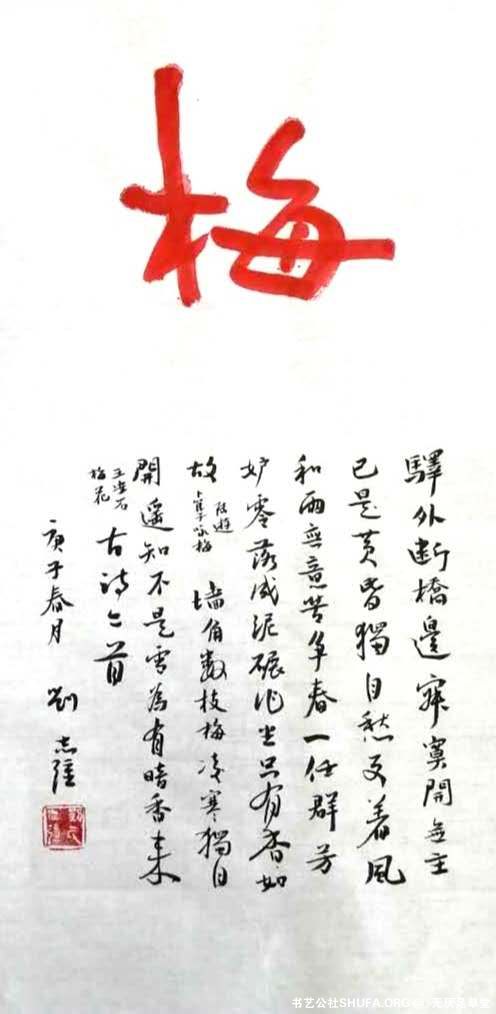 梅
驛外斷橋邊寂寞開無主
已是黃昏獨自愁更著風
和雨無意苦爭春一任群芳
妒零落成泥碾作塵只有香如
故
陸游
卜算子咏梅
墙角數枝梅凌寒獨自
開遥知不是雪為有暗香來
王安石
梅花
古詩二首
庚子春月
劉志强
书艺公社SHUFA.ORG